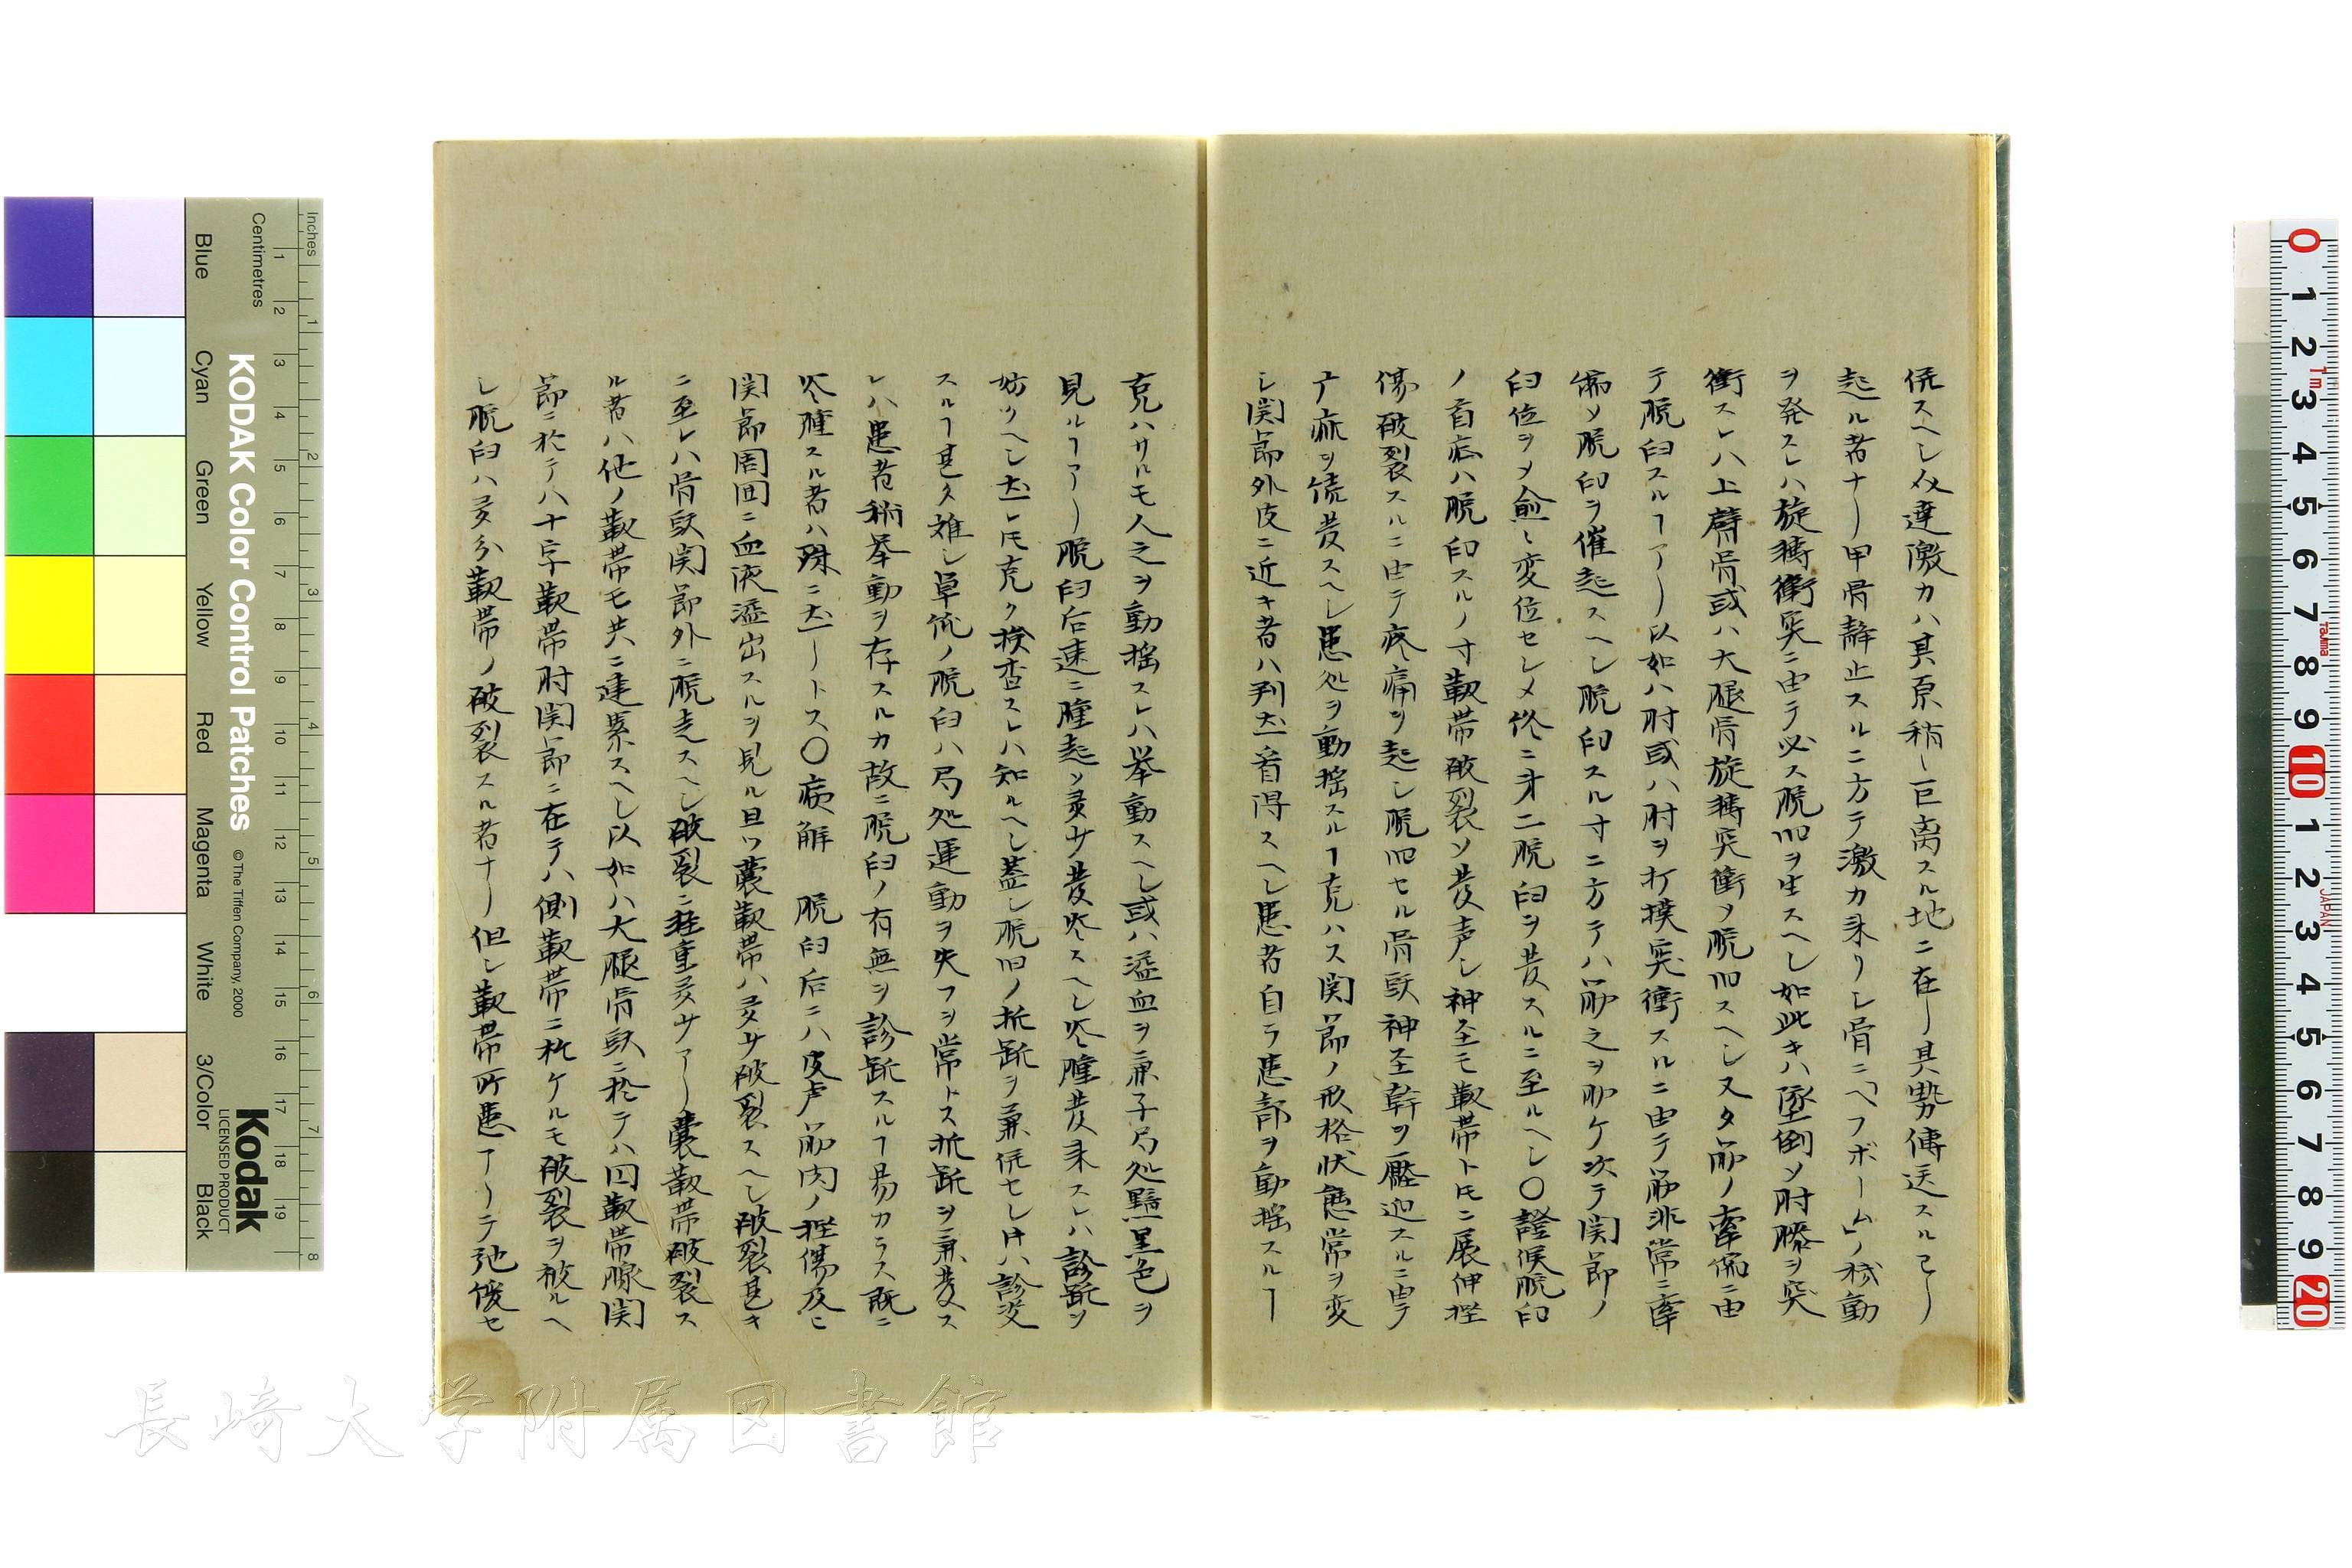 併スヘシ介達激力ハ其原稍ヽ巨离スル地ニ在リ其勢傳送スルヿリ
起ル者ナリ甲骨静止スルニ方テ激力来リシ骨ニ「ヘフボーム」ノ移動
ヲ発スレハ旋轉衝突ニ由テ必ス脱臼ヲ生スヘシ如此キハ墜倒ソ肘膝ヲ突
衝スレハ上膊骨或ハ大腿骨旋轉突衝ソ脱臼スヘシ又タ筋ノ牽縮ニ由
テ脱臼スルヿアリ以如ハ肘或ハ肘ヲ打撲突衝スルニ由テ筋非常ニ牽
縮ソ脱臼ヲ催起スヘシ脱臼スル寸ニ方テハ筋之ヲ助ケ次テ関節ノ
臼位ヲメ愈ヽ変位セシメ終ニ第二脱臼ヲ発スルニ至ルヘシ〇證候脱臼
ノ首症ハ脱臼スルノ寸靱帯破裂ソ発声シ神圣モ靱帯トモニ展伸挫
傷破裂スルニ由テ疼痛ヲ起シ脱臼セル骨頭神圣幹ヲ壓迫スルニ由テ
ハ麻ヲ続発スヘシ患処ヲ動揺スルヿ克ハス関節ノ形格状態常ヲ変
シ関節外皮ニ近キ者ハ判然看得スヘシ患者自ラ患部ヲ動揺スルヿ
克ハサルモ人之ヲ動揺スレハ挙動スヘシ或ハ溢血ヲ兼子局処黯黒色ヲ
見ルヿアリ脱臼后速ニ腫起ソ灵サ発炎スヘシ炎腫発来スレハ診断ソ
妨クヘシ然レ𪜈克ク捜査スレハ知ルヘシ蓋シ脱臼ノ折断ヲ兼併セシ片ハ診定
スルヿ甚タ難シ単純ノ脱臼ハ局処運動ヲ失フヲ常トス折断ヲ兼発ス
レハ患者稍挙動ヲ存スルカ故ニ脱臼ノ有無ヲ診断スルヿ易カラス既ニ
炎腫スル者ハ殊ニ然リトス〇病解 脱臼后ニハ皮声筋肉ノ挫傷及ヒ
関節周囲ニ血液溢出スルヲ見ル且ツ嚢靱帯ハ灵サ破裂スヘシ破裂甚キ
ニ至レハ骨頭関節外ニ脱走スヘシ破裂ニ軽重灵サアリ嚢靱帯破裂ス
ル者ハ他ノ靱帯モ共ニ連累スヘシ以如ハ大腿骨頭ニ於テハ円靱帯膝関
節ニ於テハ十字靱帯肘関節ニ在テハ側靱帯ニ於ケルモ破裂ヲ被ルヘ
シ脱臼ハ灵分靱帯ノ破裂スル者ナリ但シ靱帯所患アリテ弛緩セ
長崎大学附属図書館
KODAK Color Control Patches
© The Tiffen Company, 2000
Kodak
LICENSED PRODUCT
Inches
Centimetres
Blue
Cyan
Green
Yellow
Red
Magenta
White
3/Color
Black